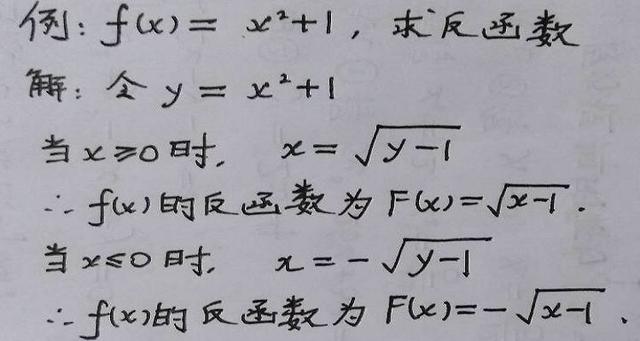 例: f(x) = x²+1, 求反函数
解: 令 y = x²+1
当 x≥0 时, x = √(y-1)
∴ f(x) 的反函数为 F(x)=√(x-1).
当 x≤0 时, x = -√(y-1)
∴ f(x)的反函数为 F(x)=-√(x-1).